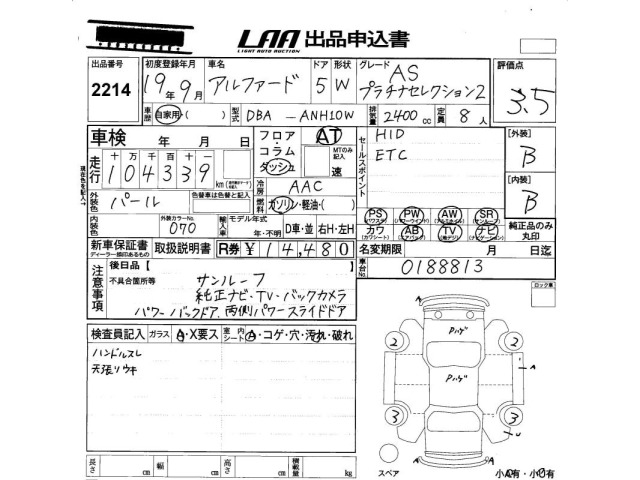 LAA 出品申込書
LIGHT AUTO AUCTION
出品番号
2214
初度登録年月
19年9月
車名
アルファード
ドア 形状
5 W
グレード
AS
プラチナセレクション2
評価点
3.5
車歴 自家用・( )
型式 DBA - ANH10W
排気量 2400 cc
定員 8 人
車検 年 月 日
フロア・コラム ダッシュ
AT
MTのみ記入
速
セールスポイント
HID
ETC
[外装]
B
[内装]
B
走行 十万 万 千 百 十 一
104339 km
冷房 AAC
燃料 ガソリン・軽油・( )
外装色 パール
色替車は色替と記入
内装色
外装カラーNo. 070
輸入車 モデル年式
年・不明 D車・並 右H・左H
PS (パワステ) PW (パワーウインド) AW (アルミホイル) SR (サンルーフ)
カワ (カワシート) AB (エアバッグ) TV (地デジ) ナビ (ナビゲーション)
純正品のみ丸印
新車保証書 取扱説明書 R券 ¥14,480
ディーラー捺印あるもの
名変期限 月 日迄
車台No. 0188813
注意事項
後日品 [ ]
不具合箇所等
サンルーフ
純正ナビ・TV・バックカメラ
パワーバックドア、両側パワースライドドア
ロック車
検査員記入 ガラス A・X要ス 室内シート A・コゲ・穴・汚れ・破れ
ハンドルスレ
天張リウキ
Pハゲ
Pハゲ
2 2
A A
3 3
A A
スペア
小A有・小U有
長さ cm 幅 cm 高さ cm 積載量 kg